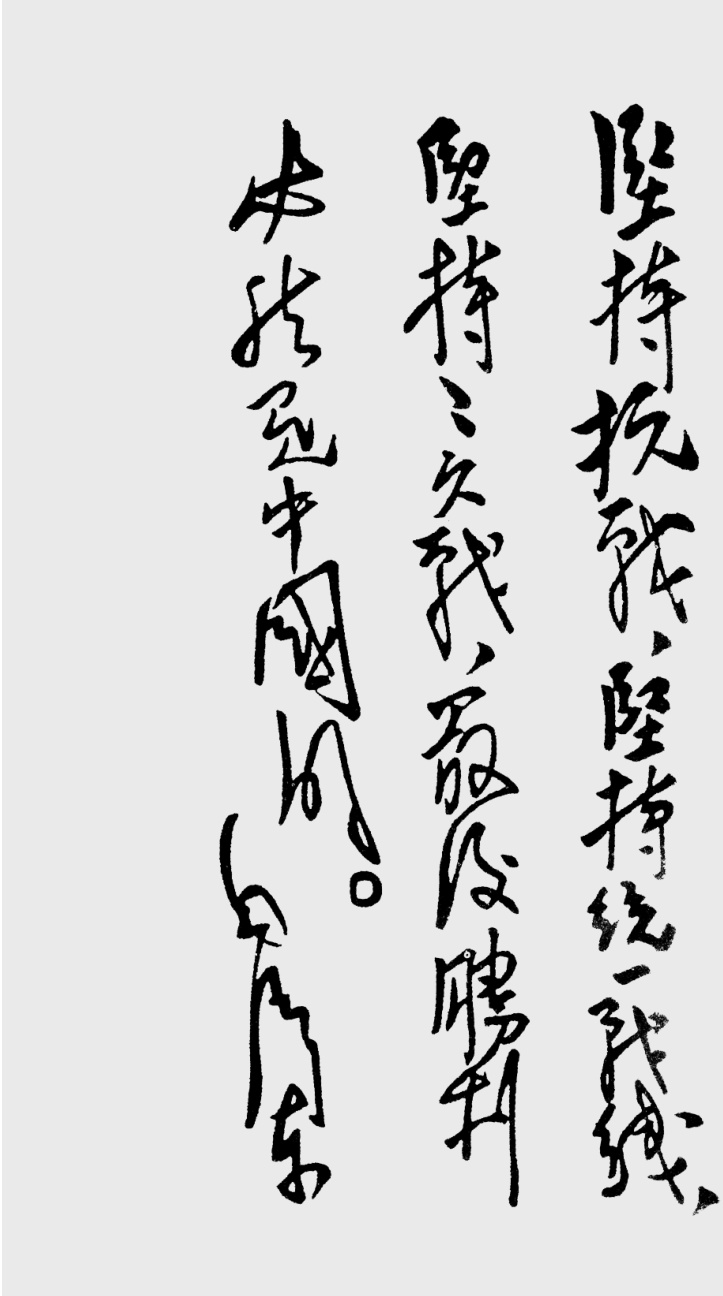 堅持抗戰、堅持統一戰綫、
堅持〻久戰、最後勝利
必然是中國的。毛澤東